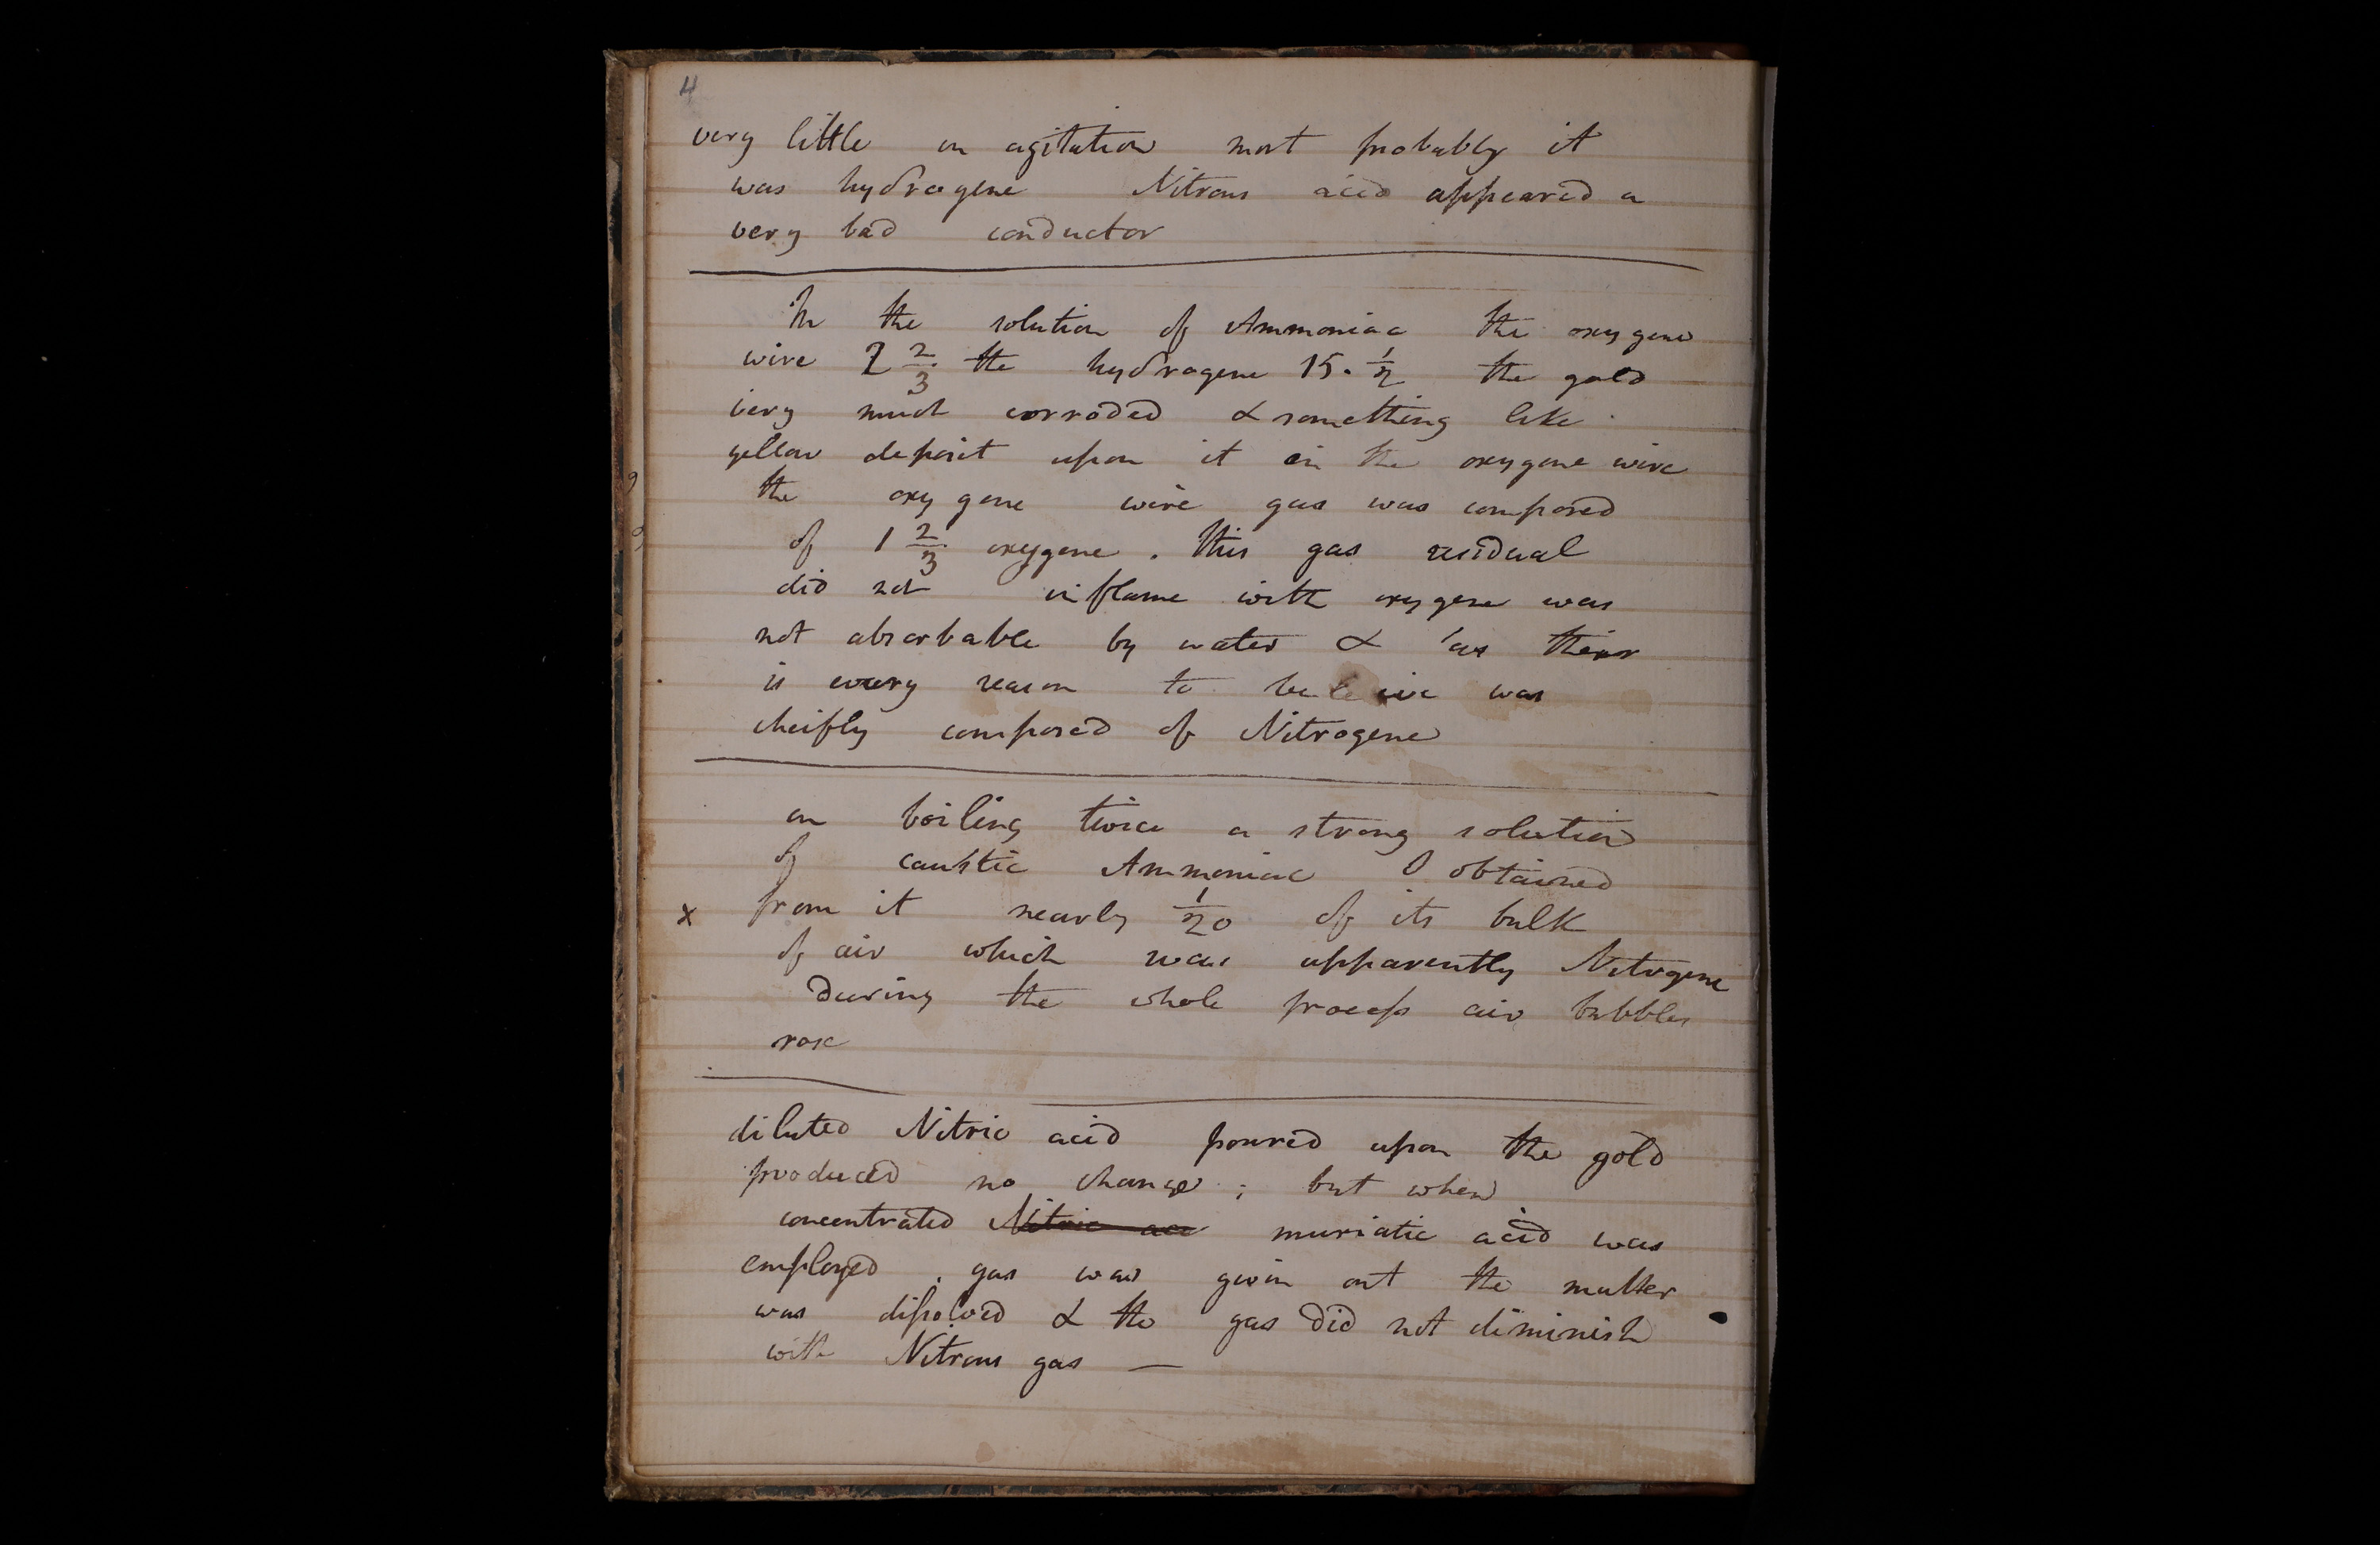 4
very little on agitation most probably it
was hydrogene Nitrous acid appeared a
very bad conductor
In the solution of Ammoniac the oxygene
wire 2 2/3 the hydrogene 15. 1/2 the gold
very much corroded & something like
yellow deposit upon it in the oxygene wire
the oxygene wire gas was composed
of 1 2/3 oxygene. This gas residual
did not inflame with oxygene was
not absorbable by water & as their
is every reason to beleive was
cheifly composed of Nitrogene
on boiling twice a strong solution
of caustic Ammoniac I obtained
x from it nearly 1/20 of its bulk
of air which was apparently Nitrogene
During the whole process air bubbles
rose
diluted Nitric acid poured upon the gold
produced no change; but when
concentrated Nitric aci muriatic acid was
employed. gas was given out the matter
was dissolved & the gas did not diminish
with Nitrous gas —